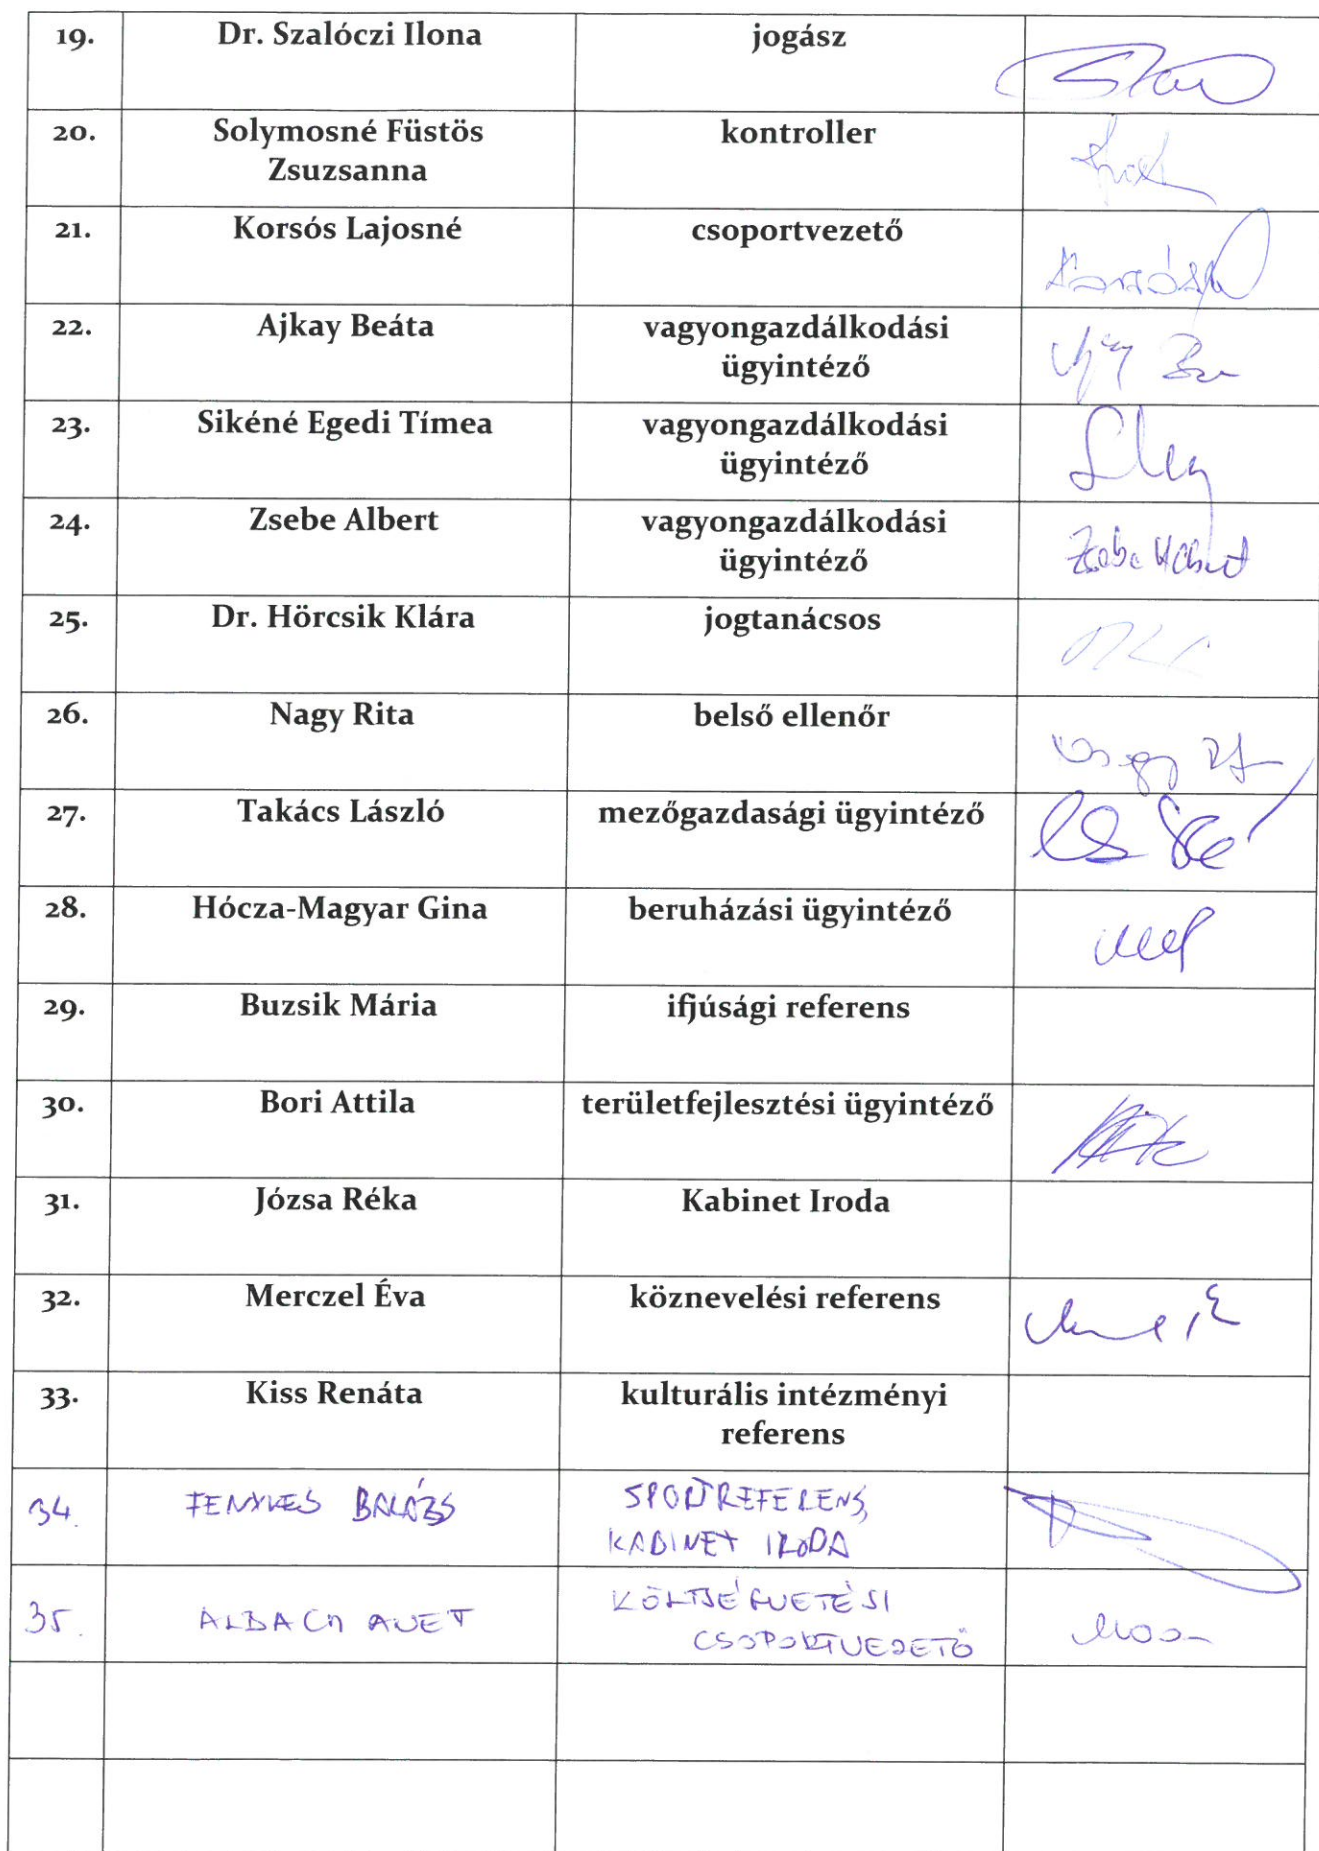 19. Dr. Szalóczi Ilona jogász
20. Solymosné Füstös kontroller
Zsuzsanna
21. Korsós Lajosné csoportvezető
22. Ajkay Beáta vagyongazdálkodási
ügyintéző
23. Sikéné Egedi Tímea vagyongazdálkodási
ügyintéző
24. Zsebe Albert vagyongazdálkodási
ügyintéző Zsebe Albert
25. Dr. Hörcsik Klára jogtanácsos
26. Nagy Rita belső ellenőr
27. Takács László mezőgazdasági ügyintéző
28. Hócza-Magyar Gina beruházási ügyintéző
29. Buzsik Mária ifjúsági referens
30. Bori Attila területfejlesztési ügyintéző
31. Józsa Réka Kabinet Iroda
32. Merczel Éva köznevelési referens
33. Kiss Renáta kulturális intézményi
referens
34. FENYVES BALÁZS SPORTREFERENS,
KABINET IRODA
35. KÖLTSÉGVETÉSI
CSOPORTVEZETŐ